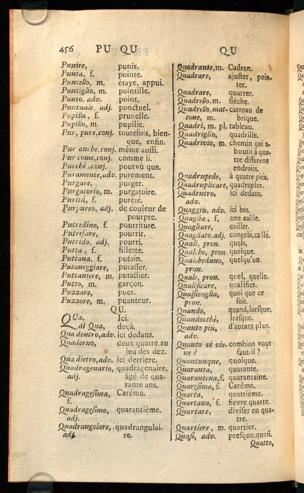 456 PU QU
Punire, punir.
Punta, f. pointe.
Puntello, m. étaye, appui.
Puntiglio, m. pointille.
Punto, adv. point.
Puntuale, adj. ponctuel.
Pupilla, f. prunelle.
Pupillo, m. pupille.
Pur, pure, conj. toutefois, bien-
que, enfin.
Pur anche, conj. même aussi.
Pur come, conj. comme si.
Purche, conj. pourvû que.
Puramente, adv. purement.
Purgare, purger.
Purgatorio, m. purgatoire.
Purità, f. pureté.
Purpureo, adj. de couleur de
pourpre.
Putredine, f. pourriture.
Putrefare, pourrir.
Putrido, adj. pourri.
Putta, f. fillette.
Puttana, f. putain.
Puttaneggiare, putasser.
Puttaniere, m. putassier.
Putto, m. garçon.
Puzzare, puer.
Puzzore, m. puanteur.
QU.
QUa, Ici.
di Qua, deçà.
Qua dentro, adv. ici dedans.
Quaderno, deux quatre au
jeu des dez.
Qua dietro, adv. ici derriere.
Quadragenario, quadragenaire,
adj. âgé de qua-
rante ans.
Quadragesima, Carême.
f.
Quadragesimo, quarantiême.
adj.
Quadrangolare, quadrangulai-
adj. re.
QU
Quadrante, m. Cadran.
Quadrare, ajuster, poin-
ter.
Quadrare, quarrer.
Quadrello, m. fléche.
Quadrello, mat- carreau de
tone, m. brique.
Quadri, m. pl. tableau.
Quadriglio, quadrille.
Quadrivio, m. chemin qui a-
boutit à qua-
tre differens
endroits.
Quadrupede, à quatre pies.
Quadruplicare, quadrupler.
Quadentro, ici dedans.
adv.
Quaggiu, adv. ici bas.
Quaglia, f. une caille.
Quagliare, cailler.
Quagliato, adj. caillé.
Quali, pron. quels.
Qual, he, pron. quelque.
Qualcheduno, quelqu'un.
pron.
Quale, pron. quel, quelle.
Qualificare, qualifier.
Qualsivoglia, quoi que ce
pron. soit.
Quando, quand, lorsque.
Quandoche, lorsque.
Quanto piu, d'autant plus.
adv.
Quanto vi vie- combien vous
ne? faut-il?
Quantunque, quoique.
Quaranta, quarante.
Quarantena, f. quarantaine.
Quaresima, f. Carême.
Quarta, quatriême.
Quartana, f. fiévre quarte.
Quartare, diviser en qua-
tre.
Quartiere, m. quartier.
Quasi, adv. presque, quasi.
Quatto,